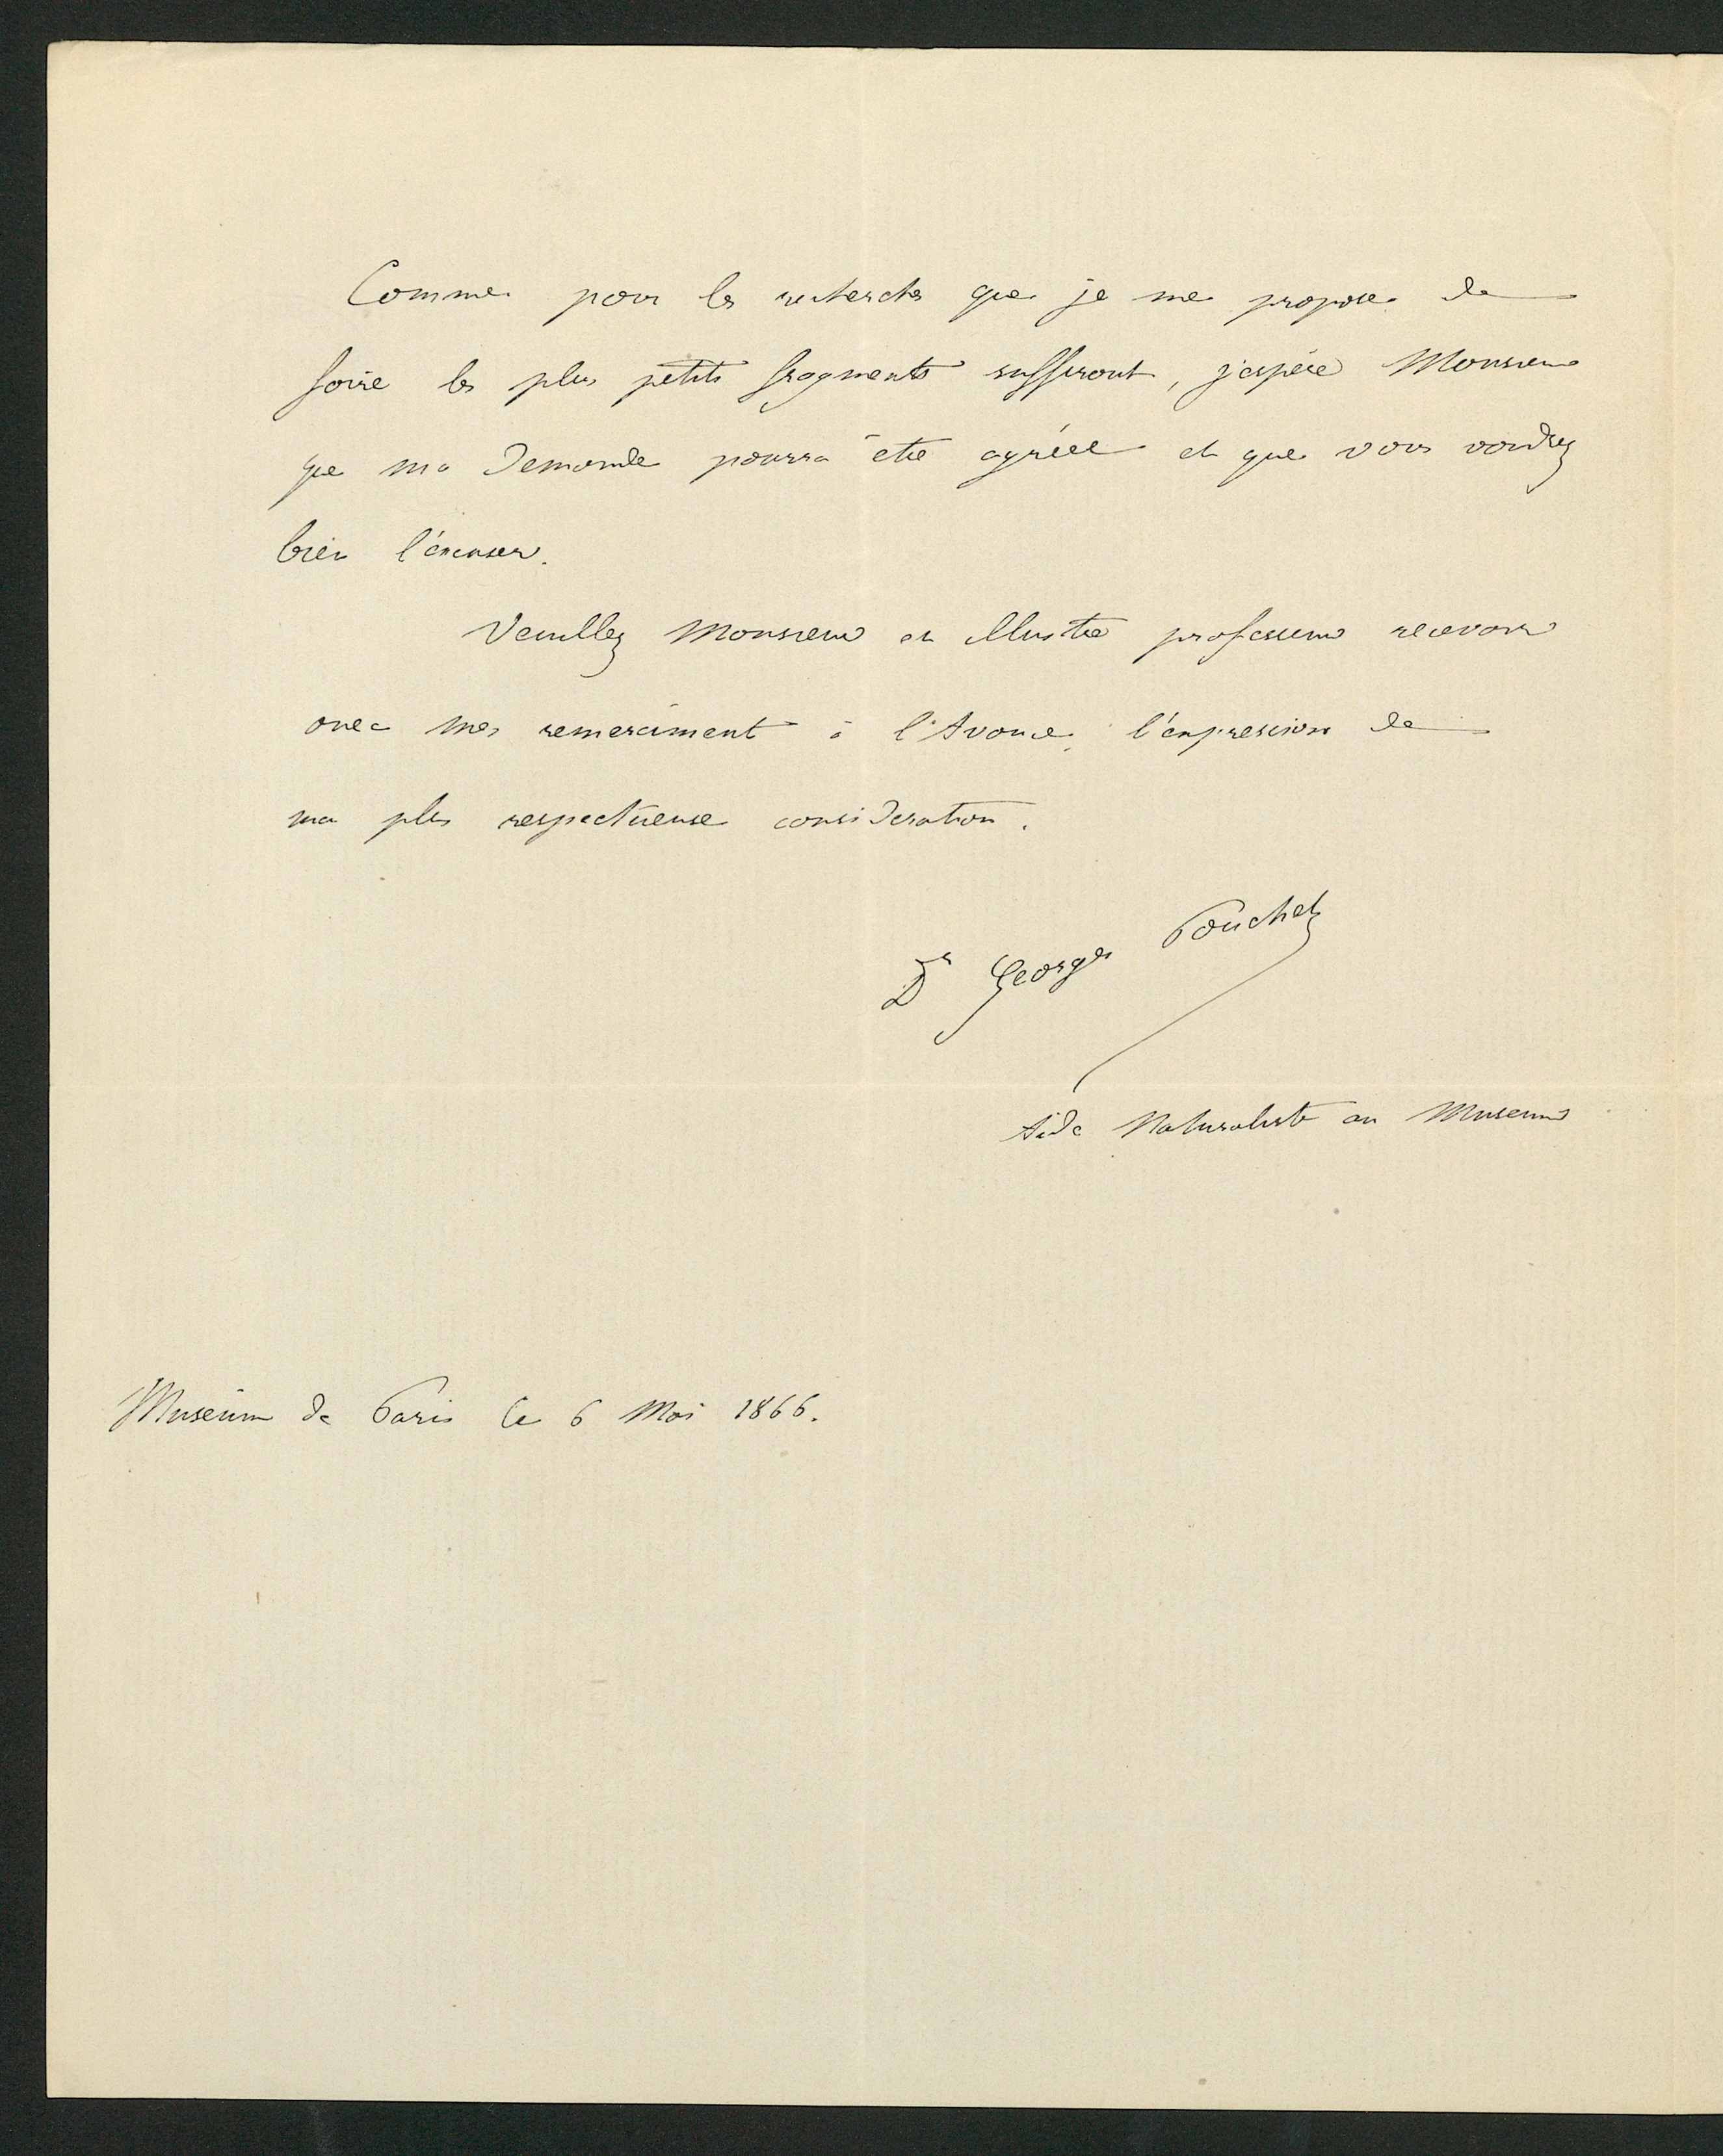 Comme pour les recherches que je me propose de
faire les plus petits fragments suffiront, j'espère Monsieur
que ma demande pourra être agréée et que vous voudrez
bien l'excuser.
Veuillez Monsieur et illustre professeur recevoir
avec mes remerciment à l'Avance, l'expression de
ma plus respectueuse consideration.
Dr Georges Pouchet
Aide Naturaliste au Museum
Museum de Paris le 6 Mai 1866.